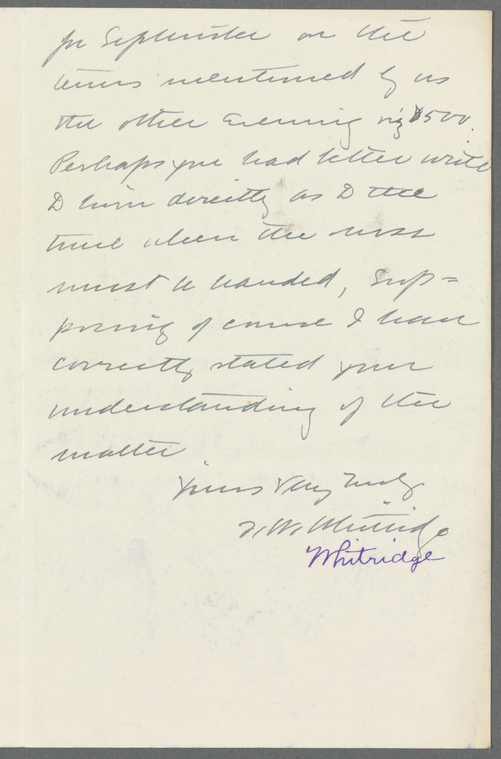 for September on the
terms mentioned by us
the other evening viz $500.
Perhaps you had better write
to him directly as to the
time when the mss
must be handed, Sup=
posing of course I have
correctly stated your
understanding of the
matter
Yours Very Truly
F. W. Whitridge
Whitridge